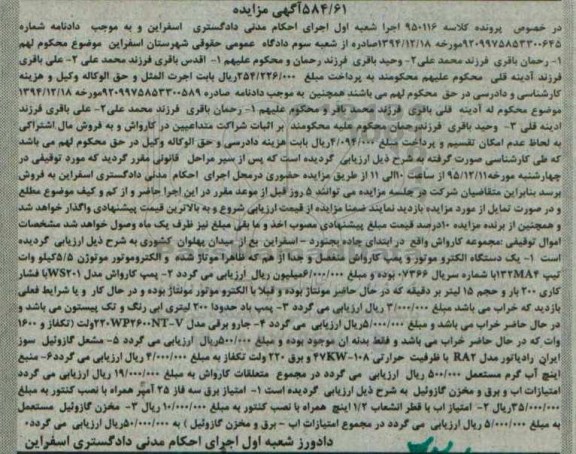 ۵۸۴/۶۱آگهی مزایده
در خصوص پرونده کلاسه ۹۵۰۱۱۶ اجرا شعبه اول اجرای احکام مدنی دادگستری اسفراین و به موجب دادنامه شماره
۹۲۰۹۹۷۵۸۵۳۳۰۰۶۲۵مورخه ۱۳۹۴/۱۲/۱۸صادره از شعبه سوم دادگاه عمومی حقوقی شهرستان اسفراین موضوع محکوم لهم
۱- رحمان باقری فرزند محمد علی۲- وحید باقری فرزند رحمان و محکوم علیهم ۱- اقدس باقری فرزند محمد علی ۲- علی باقری
فرزند آدینه قلی محکوم علیهم محکومند به پرداخت مبلغ ۲۵۴/۲۲۶/۰۰۰ریال بابت اجرت المثل و حق الوکاله وکیل و هزینه
کارشناسی و دادرسی در حق محکوم لهم می باشند همچنین به موجب دادنامه صادره ۹۲۰۹۹۷۵۸۵۳۳۰۰۵۸۹مورخه ۱۳۹۴/۱۲/۱۸
موضوع محکوم له آدینه قلی باقری فرزند محمد باقر و محکوم علیهم ۱- رحمان باقری فرزند محمد علی۲- علی باقری فرزند
ادینه قلی ۳- وحید باقری فرزندرحمان محکوم علیه محکومند بر اثبات شراکت متداعیین در کارواش و به فروش مال اشتراکی
به لحاظ عدم امکان تقسیم و پرداخت مبلغ ۴/۰۹۴/۰۰۰ریال بابت هزینه دادرسی و حق الوکاله وکیل در حق محکوم لهم می باشد
که طی کارشناسی صورت گرفته به شرح ذیل ارزیابی گردیده است که پس از سیر مراحل قانونی مقرر گردید که مورد توقیفی در
چهارشنبه مورخه۹۵/۱۲/۱۱ از ساعت ۱۰الی ۱۱ از طریق مزایده حضوری درمحل اجرای احکام مدنی دادگستری اسفراین به فروش
برسد بنابراین متقاضیان شرکت در جلسه مزایده می توانند ۵ روز قبل از موعد مقرر در این اجرا حاضر و از کم و کیف موضوع مطلع
و در صورت تمایل از مورد مزایده بازدید نمایند ضمنا مزایده از قیمت ارزیابی شروع و به بالاترین قیمت پیشنهادی واگذار خواهد شد
و همچنین از برنده مزایده ۱۰درصد قیمت مبلغ پیشنهادی مصوب اخذ و ما بقی مبلغ نیز ظرف یک ماه وصول خواهد شد مشخصات
اموال توقیفی :مجموعه کارواش واقع در ابتدای جاده بجنورد - اسفراین بع از میدان پهلوان کشوری به شرح ذیل ارزیابی گردیده
است ۱- یک دستگاه الکترو موتور و پمپ کارواش منفصل و جدا از هم که ظاهرا موتاژ شده و الکتروموتور موتوژن ۵/۵کیلو وات
تیپ ۱۳۲MA۴با شماره سریال ۰۷۳۶۶ بوده و مبلغ ۶/۰۰۰/۰۰۰میلیون ریال ارزیابی می گردد ۲- پمپ کارواش مدل WS۲۰۱با فشار
کاری ۲۰۰ بار و حجم ۱۵ لیتر بر دقیقه که در حال حاضر مونتاژ بوده و قبلا با الکترو موتور مونتاژ بوده و در حال کار و با شرایط فعلی
بازدید که خراب می باشد مبلغ ۳/۰۰۰/۰۰۰ ریال ارزیابی می گردد ۳- پمپ باد حدودا ۲۰۰ لیتری ابی رنگ و تک پیستون می باشد و
در حال حاضر خراب می باشد و مبلغ ۵/۰۰۰/۰۰۰ریال ارزیابی می گردد ۴- جارو برقی مدل ۲۲۰WP۲۶۰۰NT-Vولت (تکفاز و ۱۶۰۰
وات که در حال حاضر خراب می باشد و فقط بدنه ان موجود بوده و مبلغ ۵۰۰/۰۰۰ریال ارزیابی می گردد ۵- مشعل گازوئیل سوز
ایران رادیاتور مدل RA۲ با ظرفیت حرارتی ۴۷KW-۱۰۸ و برق ۲۲۰ ولت تکفاز به مبلغ ۴/۰۰۰/۰۰۰ ریال ارزیابی می گردد۶- منبع
اینچ آب گرم مستعمل ۵۰۰/۰۰۰ ریال ارزیابی می گردد در مجموع متعلقات کارواش به مبلغ ۱۹/۰۰۰/۰۰۰ ریال ارزیابی می گردد
امتیازات اب و برق و مخزن گازوئیل به شرح ذیل ارزیابی گردیده است ۱- امتیاز برق سه فاز ۲۵ آمپر همراه با نصب کنتور به مبلغ
۳۵/۰۰۰/۰۰۰ریال ۲- امتیاز اب با قطر انشعاب ۱/۲ اینچ همراه با نصب کنتور به مبلغ ۱۰/۰۰۰/۰۰۰ ریال ۳- مخزن گازوئیل مستعمل
به مبلغ ۵/۰۰۰/۰۰۰ ریال ارزیابی می گردد در مجموع امتیازات اب - برق و مخزن گازوئیل ) به ۵۰/۰۰۰/۰۰۰ریال ارزیابی می گردد۰
دادورز شعبه اول اجرای احکام مدنی دادگستری اسفراین